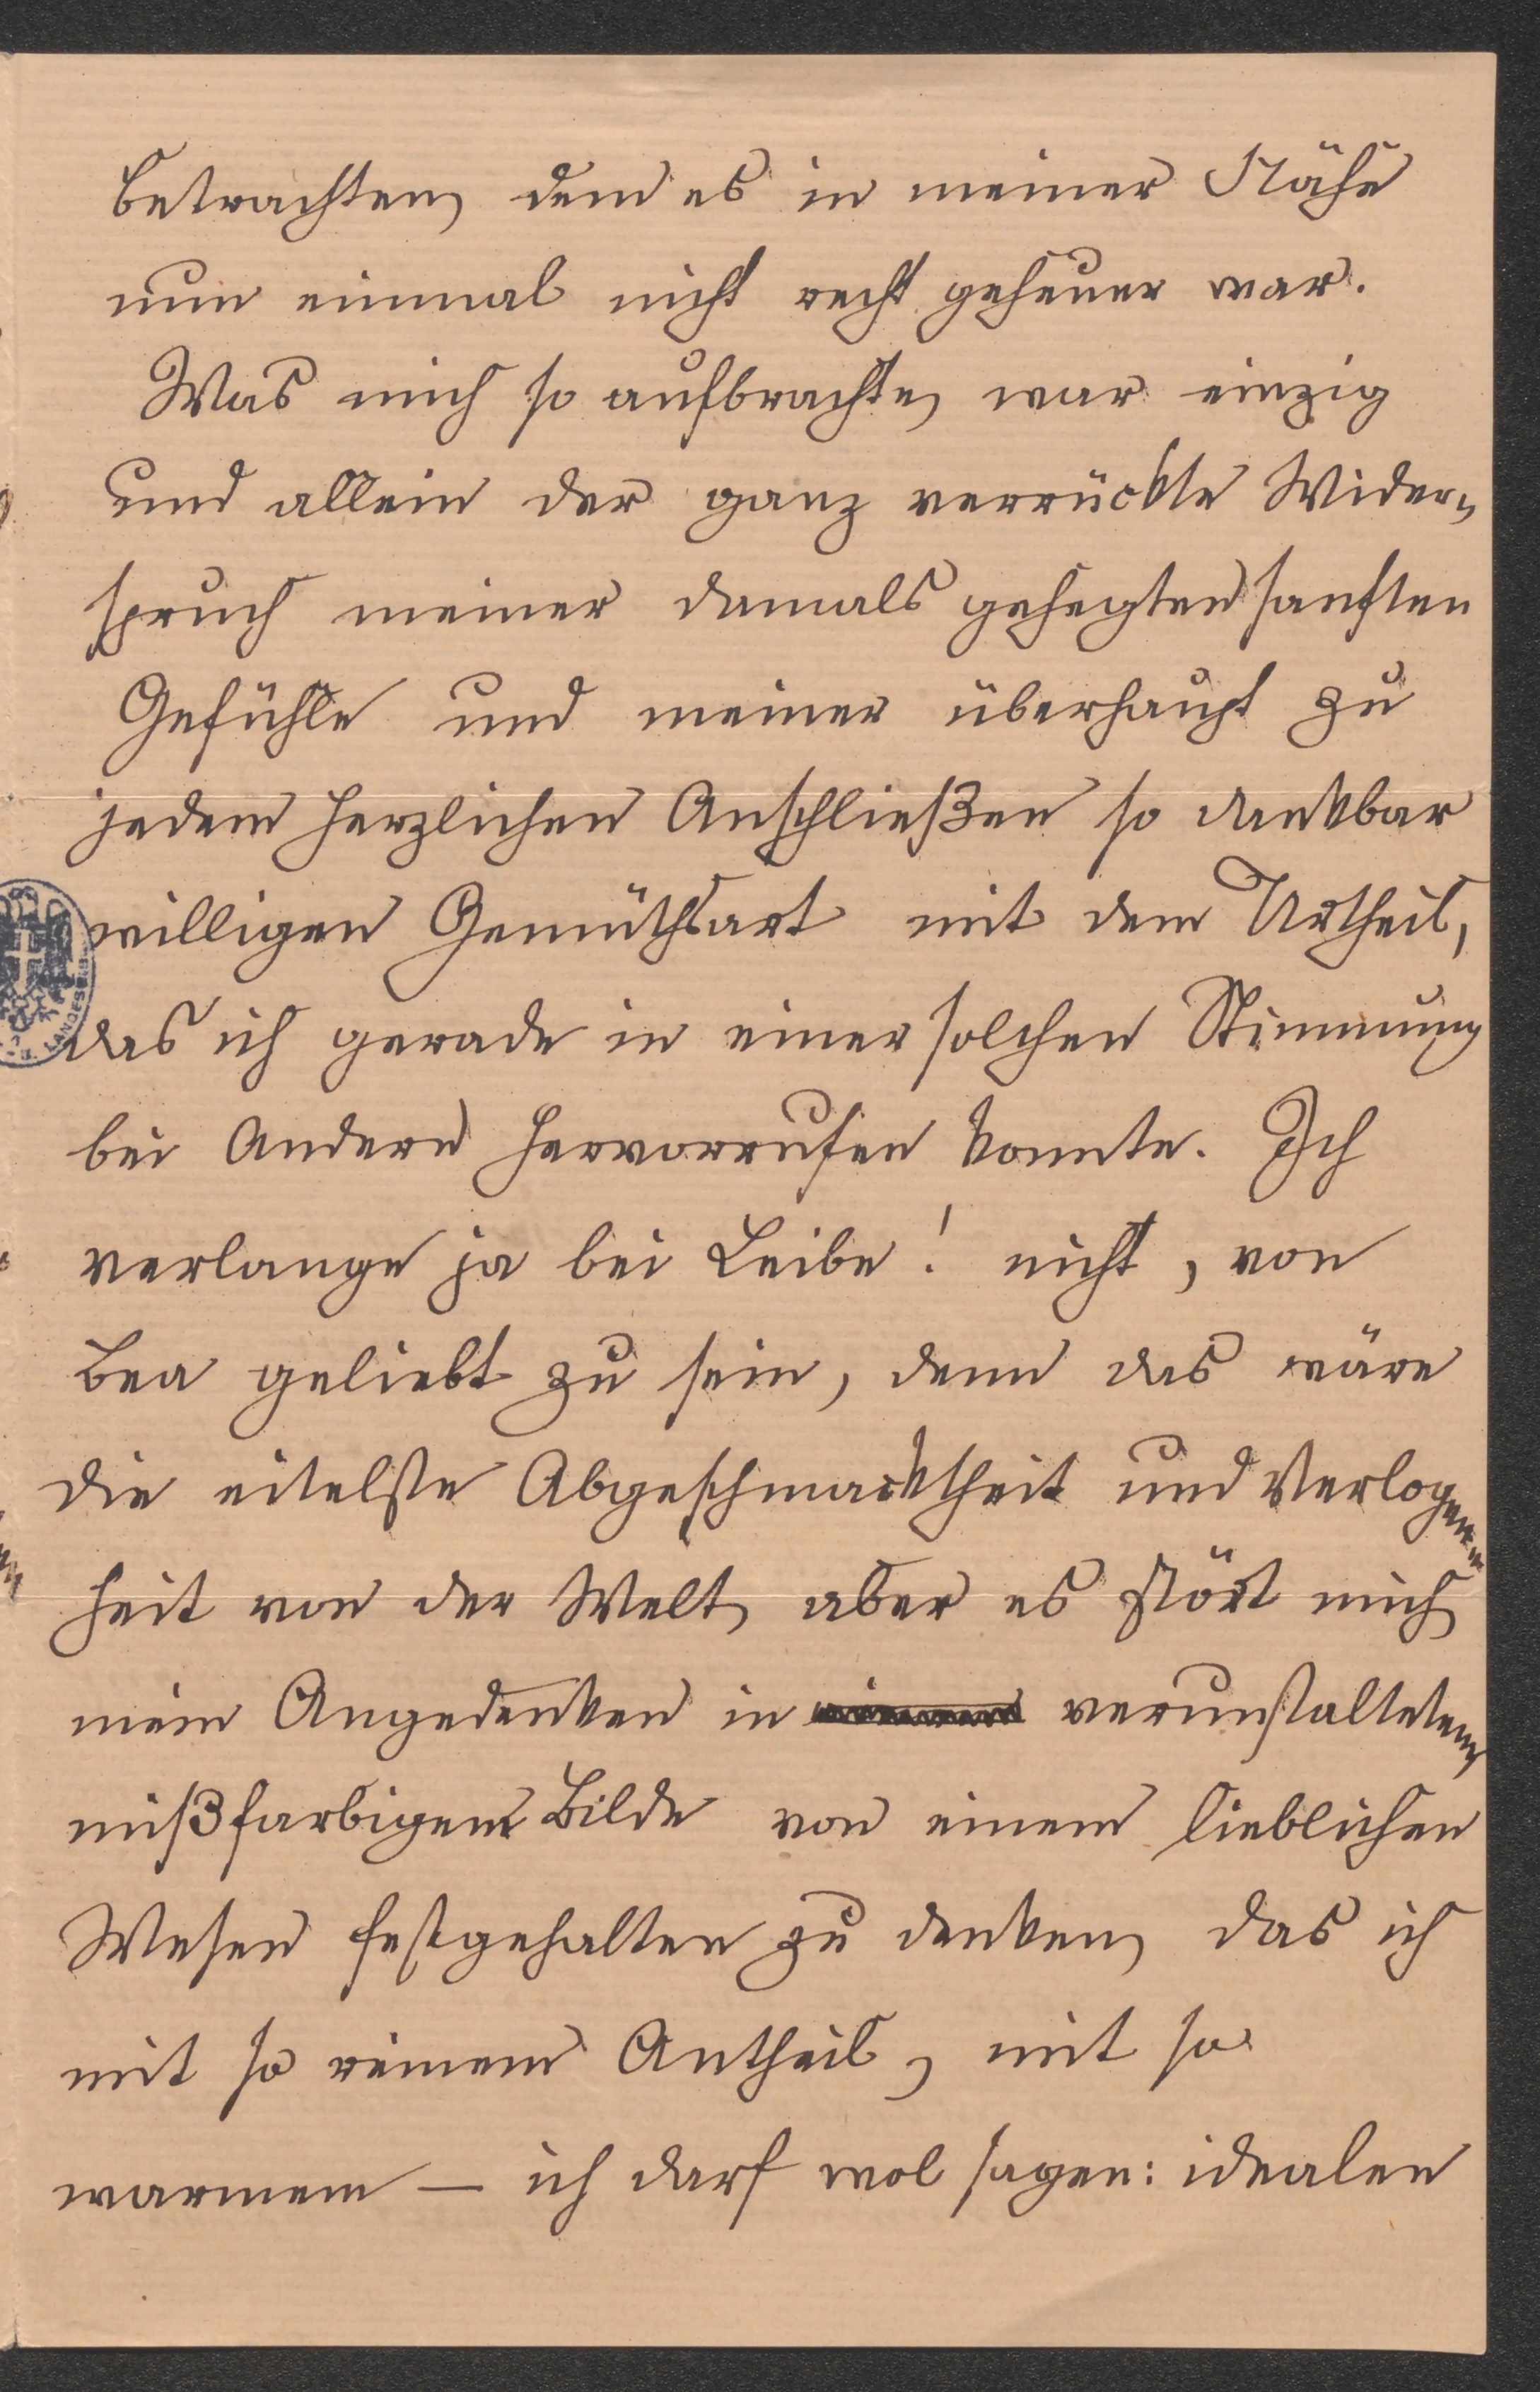 betrachten, dem es in meiner Nähe
nun einmal nicht recht geheuer war.
Was mich so aufbrachte, war einzig
und allein der ganz verrückte Wider-
spruch meiner damals gehegten sanften
Gefühle und meiner überhaupt zu
jedem herzlichen Anschließen so dankbar
willigen Gemüthsart mit dem Urtheil,
das ich gerade in einer solchen Stimmung
bei Andern hervorrufen konnte. Ich
verlange ja bei Leibe! nicht, von
Bea geliebt zu sein, denn das wäre
die eitelste Abgeschmacktheit und Verlogen-
heit von der Welt, aber es stört mich
mein Angedenken in verunstaltetem,
mißfarbigem Bilde von einem lieblichen
Wesen festgehalten zu denken, das ich
mit so reinem Antheil, mit so
warmem — ich darf wol sagen: idealen
LANDES